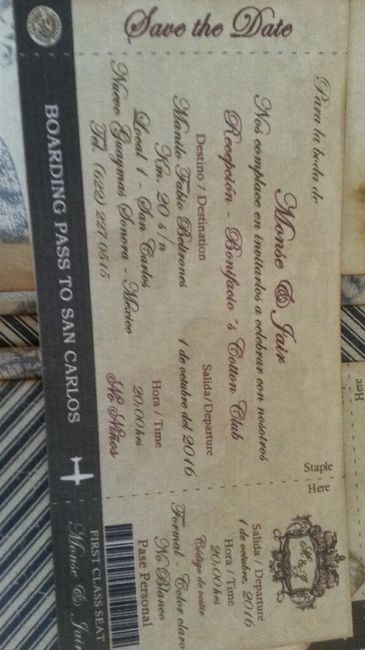 Save the Date
Para la boda de
Monse & Jair
Nos complace en invitarlos a celebrar con nosotros
Recepción - Bonifacio's Cotton Club
Destino / Destination
Manlio Fabio Beltrones
Km. 20 s/n
Local 1 - San Carlos
Nuevo Guaymas Sonora - México
Tel. (622) 227 0515
Salida/Departure
1 de octubre del 2016
Hora / Time
20:00hrs
No Niños
BOARDING PASS TO SAN CARLOS
Staple
Here
M & J
Salida / Departure
1 de octubre, 2016
Hora / Time
20:00hrs
Código de vestir
Formal - Color claro
No Blanco
Pase Personal
FIRST CLASS SEAT
Monse & Jair